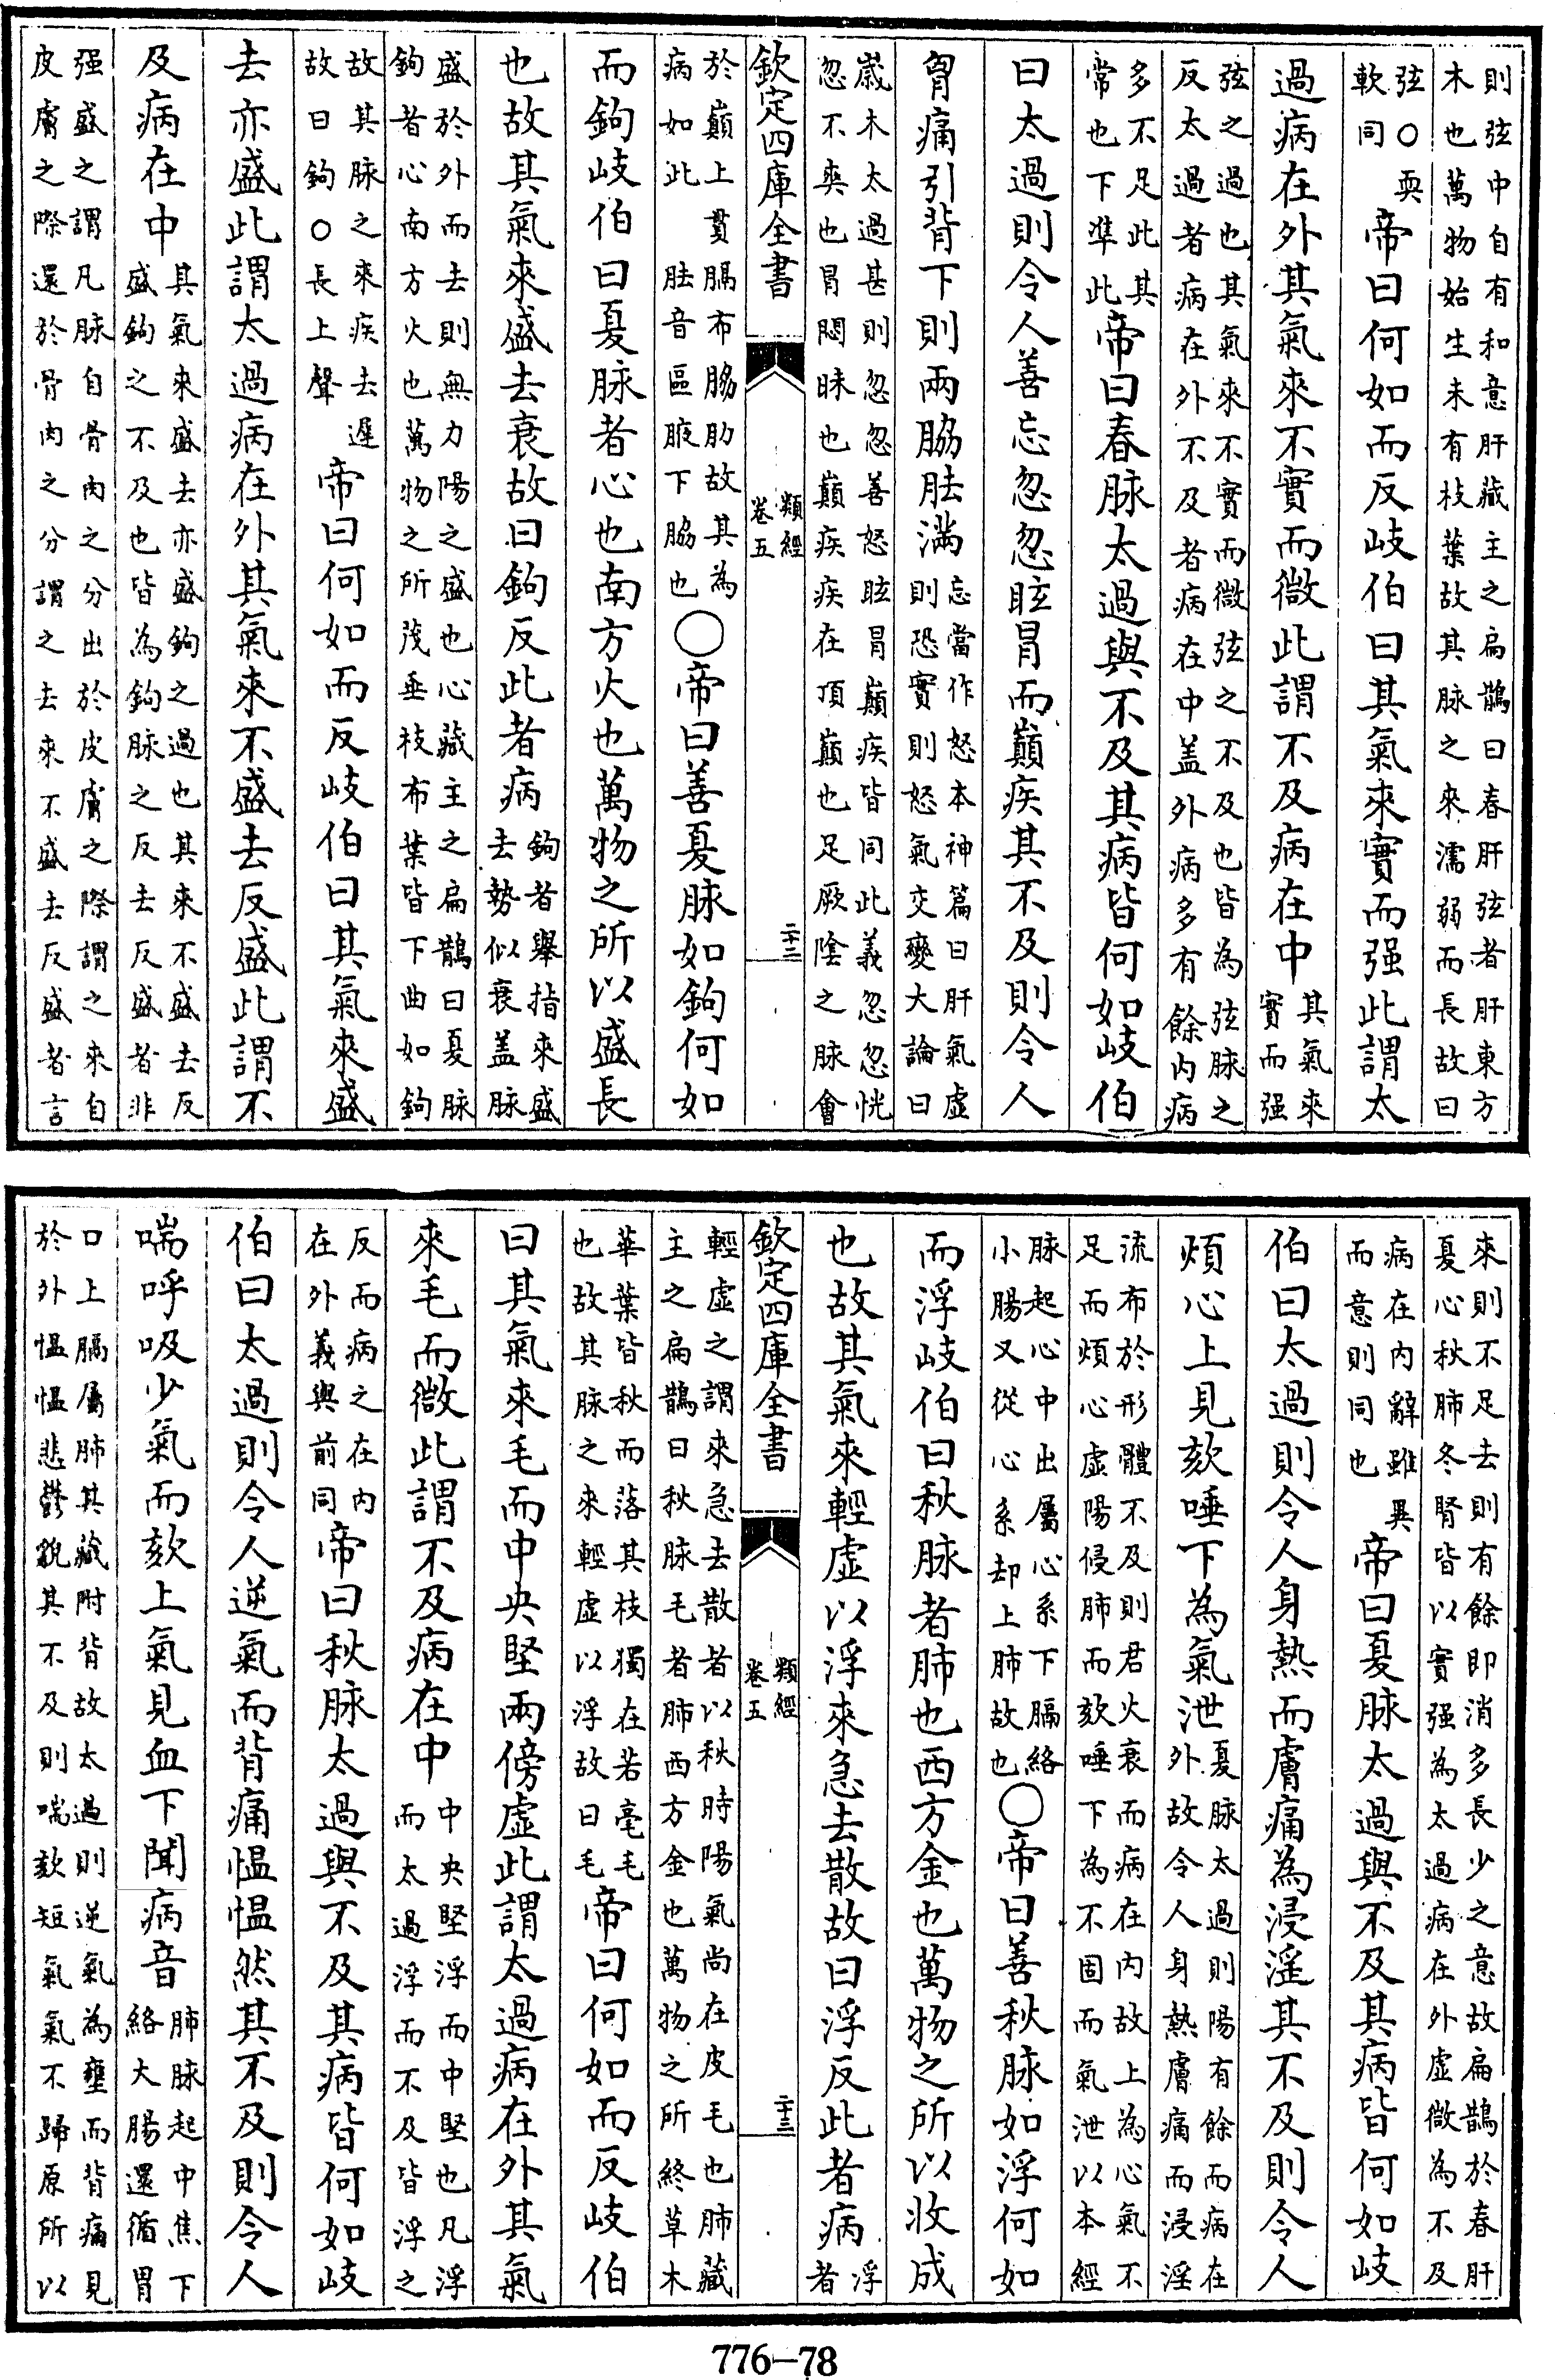 則弦中自有和意肝藏主之扁鵲曰春肝弦者肝東方
木也萬物始生未有枝葉故其脉之來濡弱而長故曰
弦○耎
軟同
帝曰何如而反岐伯曰其氣來實而强此謂太
過病在外其氣來不實而微此謂不及病在中
其氣來
實而强
弦之過也其氣來不實而微弦之不及也皆為弦脉之
反太過者病在外不及者病在中盖外病多有餘内病
多不足此其
常也下凖此
帝曰春脉太過與不及其病皆何如岐伯
曰太過則令人善忘忽忽眩冒而巔疾其不及則令人
胷痛引背下則兩脇胠滿
忘當作怒本神篇曰肝氣虛
則恐實則怒氣交變大論曰
嵗木太過甚則忽忽善怒眩冒巔疾皆同此義忽忽恍
忽不爽也冒悶昧也巔疾疾在頂巔也足厥陰之脉會
欽定四庫全書
類經
卷五
二十二
於巔上貫膈布脇肋故其為
病如此 胠音區腋下脇也
○帝曰善夏脉如鉤何如
而鉤岐伯曰夏脉者心也南方火也萬物之所以盛長
也故其氣來盛去衰故曰鉤反此者病
鉤者舉指來盛
去勢似衰盖脉
盛於外而去則無力陽之盛也心藏主之扁鵲曰夏脉
鉤者心南方火也萬物之所茂垂枝布葉皆下曲如鉤
故其脉之來疾去遲
故曰鉤○長上聲
帝曰何如而反岐伯曰其氣來盛
去亦盛此謂太過病在外其氣來不盛去反盛此謂不
及病在中
其氣來盛去亦盛鉤之過也其來不盛去反
盛鉤之不及也皆為鉤脉之反去反盛者非
强盛之謂凡脉自骨肉之分出於皮膚之際謂之來自
皮膚之際還於骨肉之分謂之去來不盛去反盛者言
來則不足去則有餘即消多長少之意故扁鵲於春肝
夏心秋肺冬腎皆以實强為太過病在外虛微為不及
病在内辭雖異
而意則同也
帝曰夏脉太過與不及其病皆何如岐
伯曰太過則令人身熱而膚痛為浸淫其不及則令人
煩心上見欬唾下為氣泄
夏脉太過則陽有餘而病在
外故令人身熱膚痛而浸淫
流布於形體不及則君火衰而病在内故上為心氣不
足而煩心虛陽侵肺而欬唾下為不固而氣泄以本經
脉起心中出屬心系下膈絡
小腸又從心系却上肺故也
○帝曰善秋脉如浮何如
而浮岐伯曰秋脉者肺也西方金也萬物之所以收成
也故其氣來輕虛以浮來急去散故曰浮反此者病
浮
者
欽定四庫全書
類經
卷五
二十三
輕虛之謂來急去散者以秋時陽氣尚在皮毛也肺藏
主之扁鵲曰秋脉毛者肺西方金也萬物之所終草木
華葉皆秋而落其枝獨在若毫毛
也故其脉之來輕虛以浮故曰毛
帝曰何如而反岐伯
曰其氣來毛而中央堅兩傍虛此謂太過病在外其氣
來毛而微此謂不及病在中
中央堅浮而中堅也凡浮
而太過浮而不及皆浮之
反而病之在内
在外義與前同
帝曰秋脉太過與不及其病皆何如岐
伯曰太過則令人逆氣而背痛愠愠然其不及則令人
喘呼吸少氣而欬上氣見血下聞病音
肺脉起中焦下
絡大腸還循胃
口上膈屬肺其藏附背故太過則逆氣為壅而背痛見
於外愠愠悲鬱貌其不及則喘欬短氣氣不歸原所以
776-78